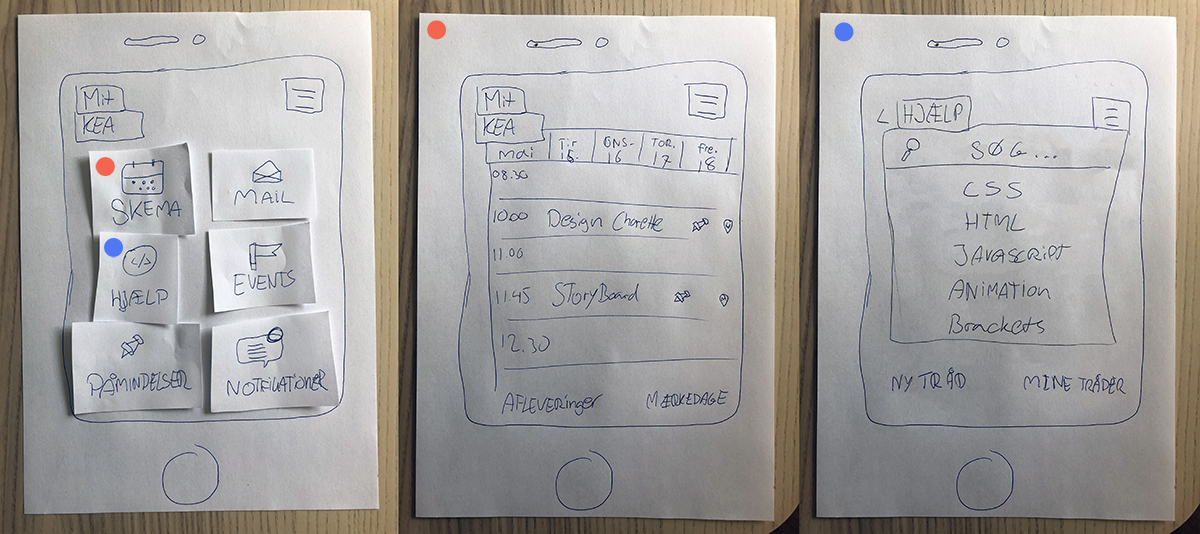 Mit
KEA
SKEMA
MAIL
</>
HJÆLP
EVENTS
PÅMINDELSER
NOTFIKATIONER
Mit
KEA
mai
Tir 15.
ONS- 16
TOR. 17
fre. 18
08.30
10.00 Design Charette
11.00
11.45 StoryBoard
12.30
AFLEVERinger
MÆRKEDAGE
<
HJÆLP
SØG...
CSS
HTML
JAVASCRIPT
ANIMATION
Brackets
NY TRÅD
MINE TRÅDER